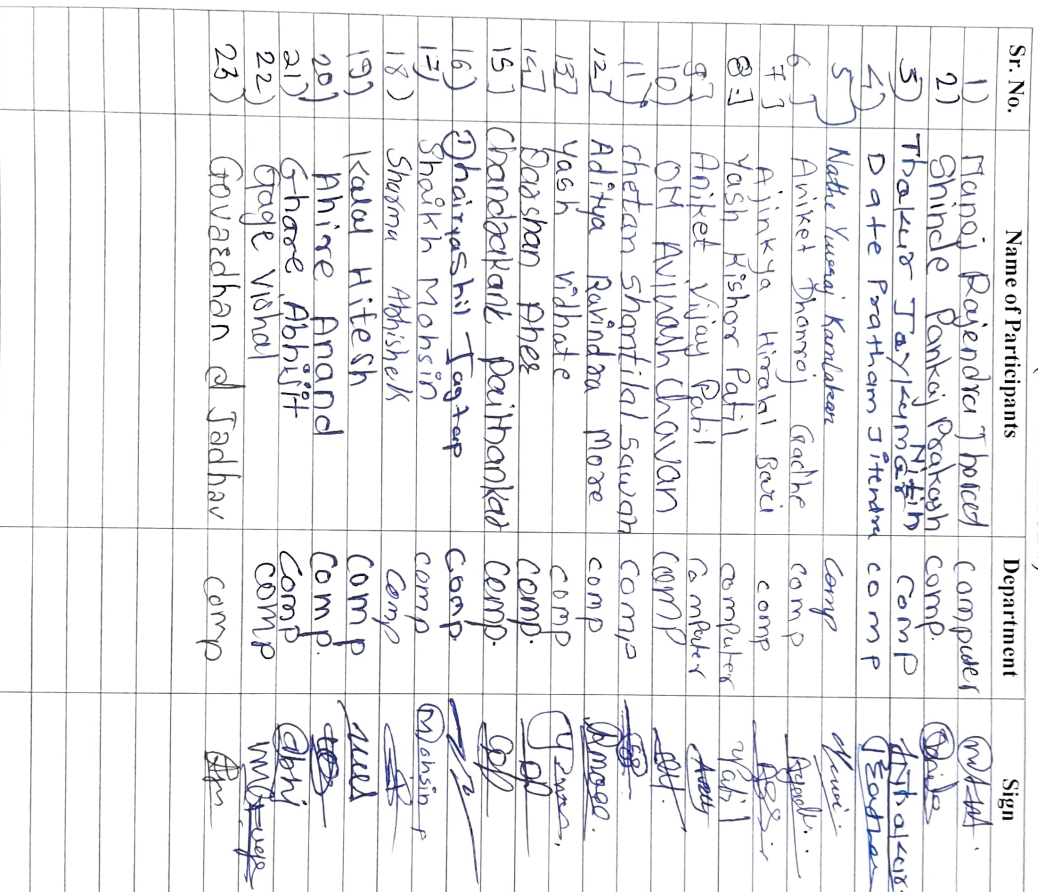 Sr. No. Name of Participants Department Sign
1) Manoj Rajendra Thorat computer
2) Shinde Pankaj Prakash comp.
3) Thakur Jaykumar Nitin comp JNThakur
4) Date Pratham Jitendra comp
5] Nathe Yuvraj Kamlakar comp
6] Aniket Dhanraj Gadhe comp
7] Ajinkya Hiralal Bari comp
8] Yash Kishor Patil computer Patil
9] Aniket Vijay Patil Computer
10) OM AVINASH Chavan comp
11) chetan Shantilal Sawan comp
12] Aditya Ravindra More comp Amore.
13] Yash Vidhate comp
14] Darshan Aher comp.
15] Chandrakant Paithankar comp.
16) Dhairyashil Jagtap comp.
17) Shaikh Mohsin comp Mohsin
18) Sharma Abhishek comp
19) Kalal Hitesh comp
20) Ahire Anand comp.
21) Ghare Abhijit comp. abhi
22) Gage Vishal comp
23) Govardhan d Jadhav comp